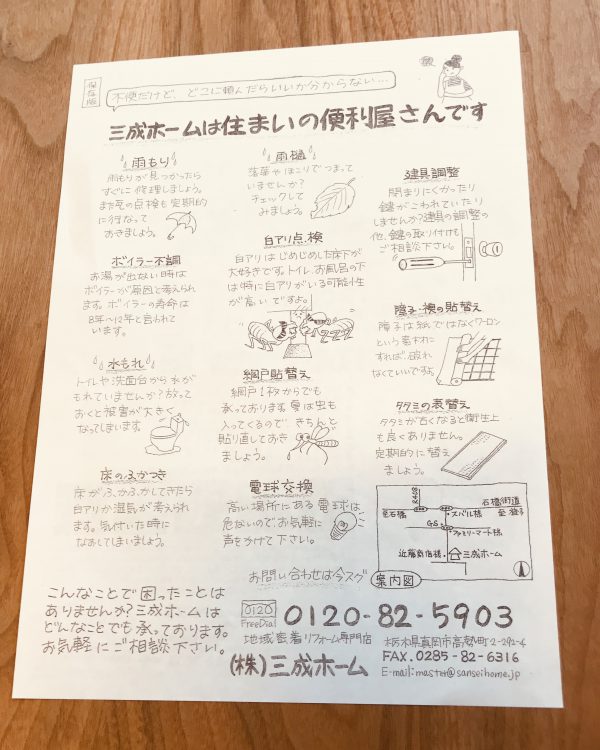 保存版
不便だけど、どこに頼んだらいいか分からない…
三成ホームは住まいの便利屋さんです
雨もり
雨もりが見つかったら
すぐに修理しましょう。
また瓦の点検も定期的
に行なって
おきましょう。
ボイラー不調
お湯が出ない時は
ボイラーが原因と考えられ
ます。ボイラーの寿命は
8年〜12年と言われて
います。
水もれ
トイレや洗面台から水が
もれていませんか?放って
おくと被害が大きく
なってしまいます
床のふかつき
床がふかふかしてきたら
白アリか湿気が考えられ
ます。気付いた時に
なおしてしまいましょう。
雨樋
落葉やほこりでつまって
いませんか?
チェックして
みましょう。
白アリ点検
白アリはじめじめした床下が
大好きです。トイレ、お風呂の下
は特に白アリがいる可能性
が高いですよ。
網戸貼替え
網戸1枚からでも
承っております。夏は虫も
入ってくるので きちんと
貼り直しておき
ましょう。
電球交換
高い場所にある電球は
危ないのでお気軽に
声をかけて下さい。
建具調整
閉まりにくかったり
鍵がこわれていたり
しませんか?建具の調整の
他、鍵の取り付けも
ご相談下さい。
障子・襖の貼替え
障子は紙ではなくワーロン
という素材に
すれば、破れ
なくていいですよ
タタミの表替え
タタミが古くなると衛生上
も良くありません。
定期的に替え
ましょう。
R408
石橋街道
至石橋
スバル様
至 益子
GS
ファミリーマート様
近藤商店様
三成ホーム
案内図
こんなことで困ったことは
ありませんか?三成ホームは
どんなことでも承っております。
お気軽にご相談下さい。
お問い合わせは今スグ
0120
FreeDial
0120-82-5903
地域密着リフォーム専門店
(株)三成ホーム
栃木県真岡市高勢町2-292-4
FAX.0285-82-6316
E-mail:master@sanseihome.jp